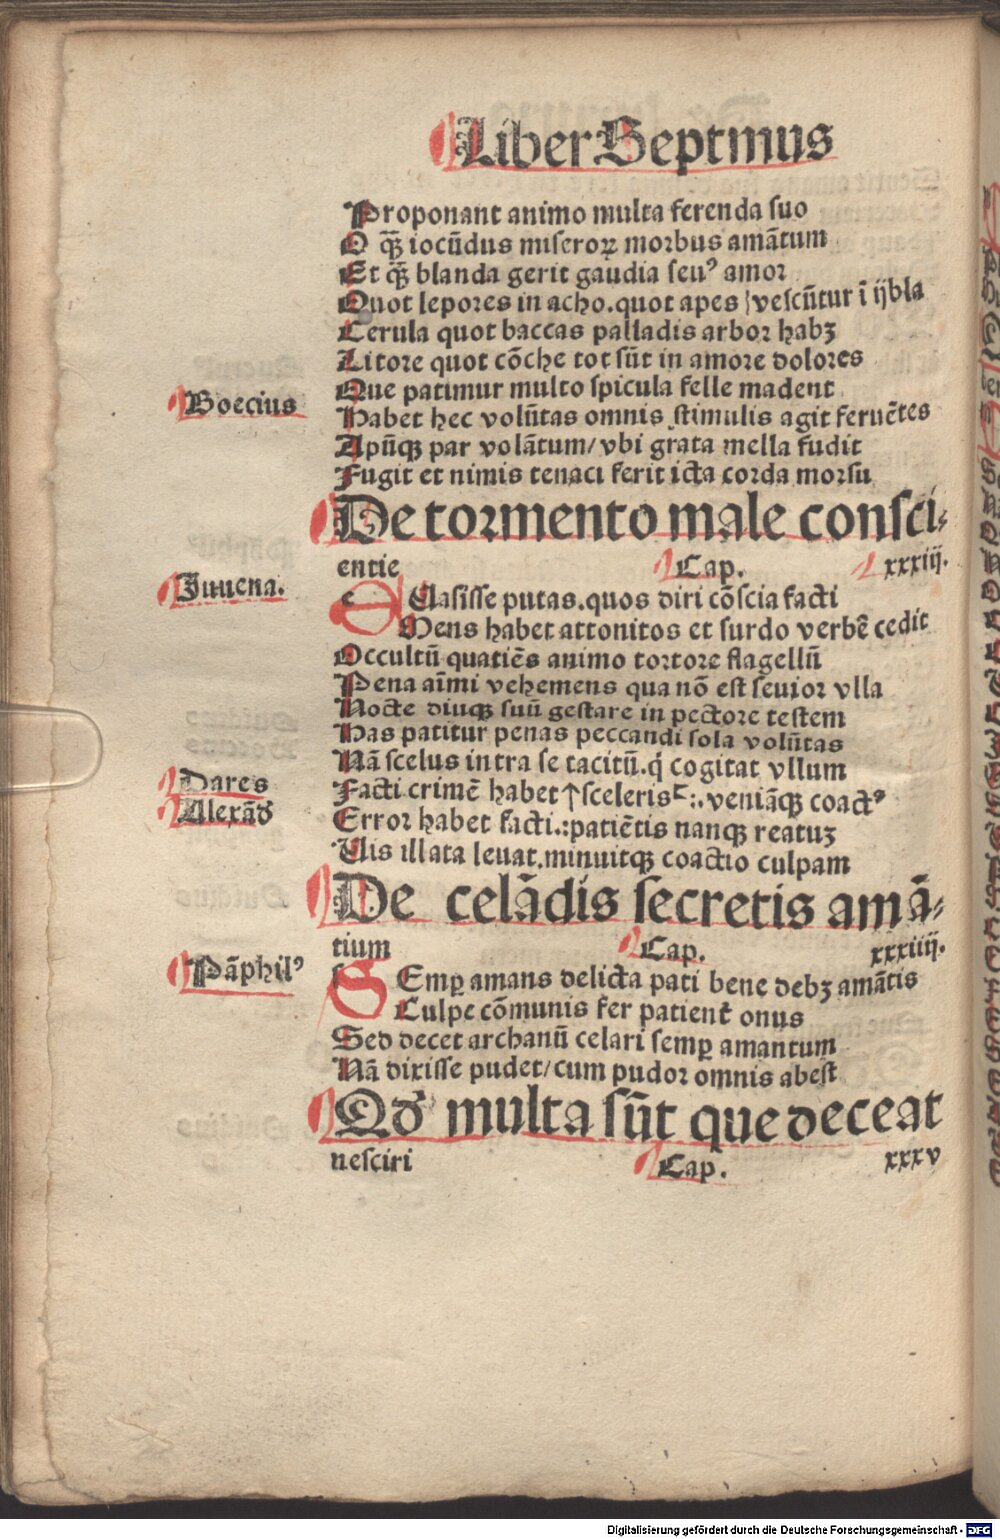 Liber Septmus
Proponant animo multa ferenda suo
O q̄ȝ iocūdus miseroꝝ morbus amātum
Et q̄ȝ blanda gerit gaudia seuꝰ amor
Quot lepores in acho.quot apes vescūtur ī ijbla
Cerula quot baccas palladis arbor habȝ
Litore quot cōche tot sūt in amore dolores
Que patimur multo spicula felle madent
Boecius
Habet hec volūtas omnis stimulis agit feruētes
Apūqȝ par volātum/ vbi grata mella fudit
Fugit et nimis tenaci ferit icta corda morsu
De tormento male consci⸗
entie Cap. xxxiij.
Juuena.
e Uasisse putas.quos diri cōscia facti
Mens habet attonitos et surdo verbē cedit
Occultū quatiēs animo tortore flagellū
Pena aīmi vehemens qua nō est seuior vlla
Nocte diuqȝ suū gestare in pectore testem
Has patitur penas peccandi sola volūtas
Nā scelus intra se tacitū.q̇ cogitat vllum
Dares
Facti crimē habet sceleris :. veniāqȝ coactꝰ
Alexād
Error habet facti.:patiētis nanqȝ reatuȝ
Uis illata leuat.minuitqȝ coactio culpam
De celādis secretis amā⸗
tium Cap. xxxiiij.
Pāphilꝰ
s Semꝑ amans delicta pati bene debȝ amātis
Culpe cōmunis fer patient̄ onus
Sed decet archanū celari semꝑ amantum
Nā dixisse pudet/cum pudor omnis abest
Qd multa sūt que deceat
nesciri Cap. xxxv
Digitalisierung gefördert durch die Deutsche Forschungsgemeinschaft - DFG